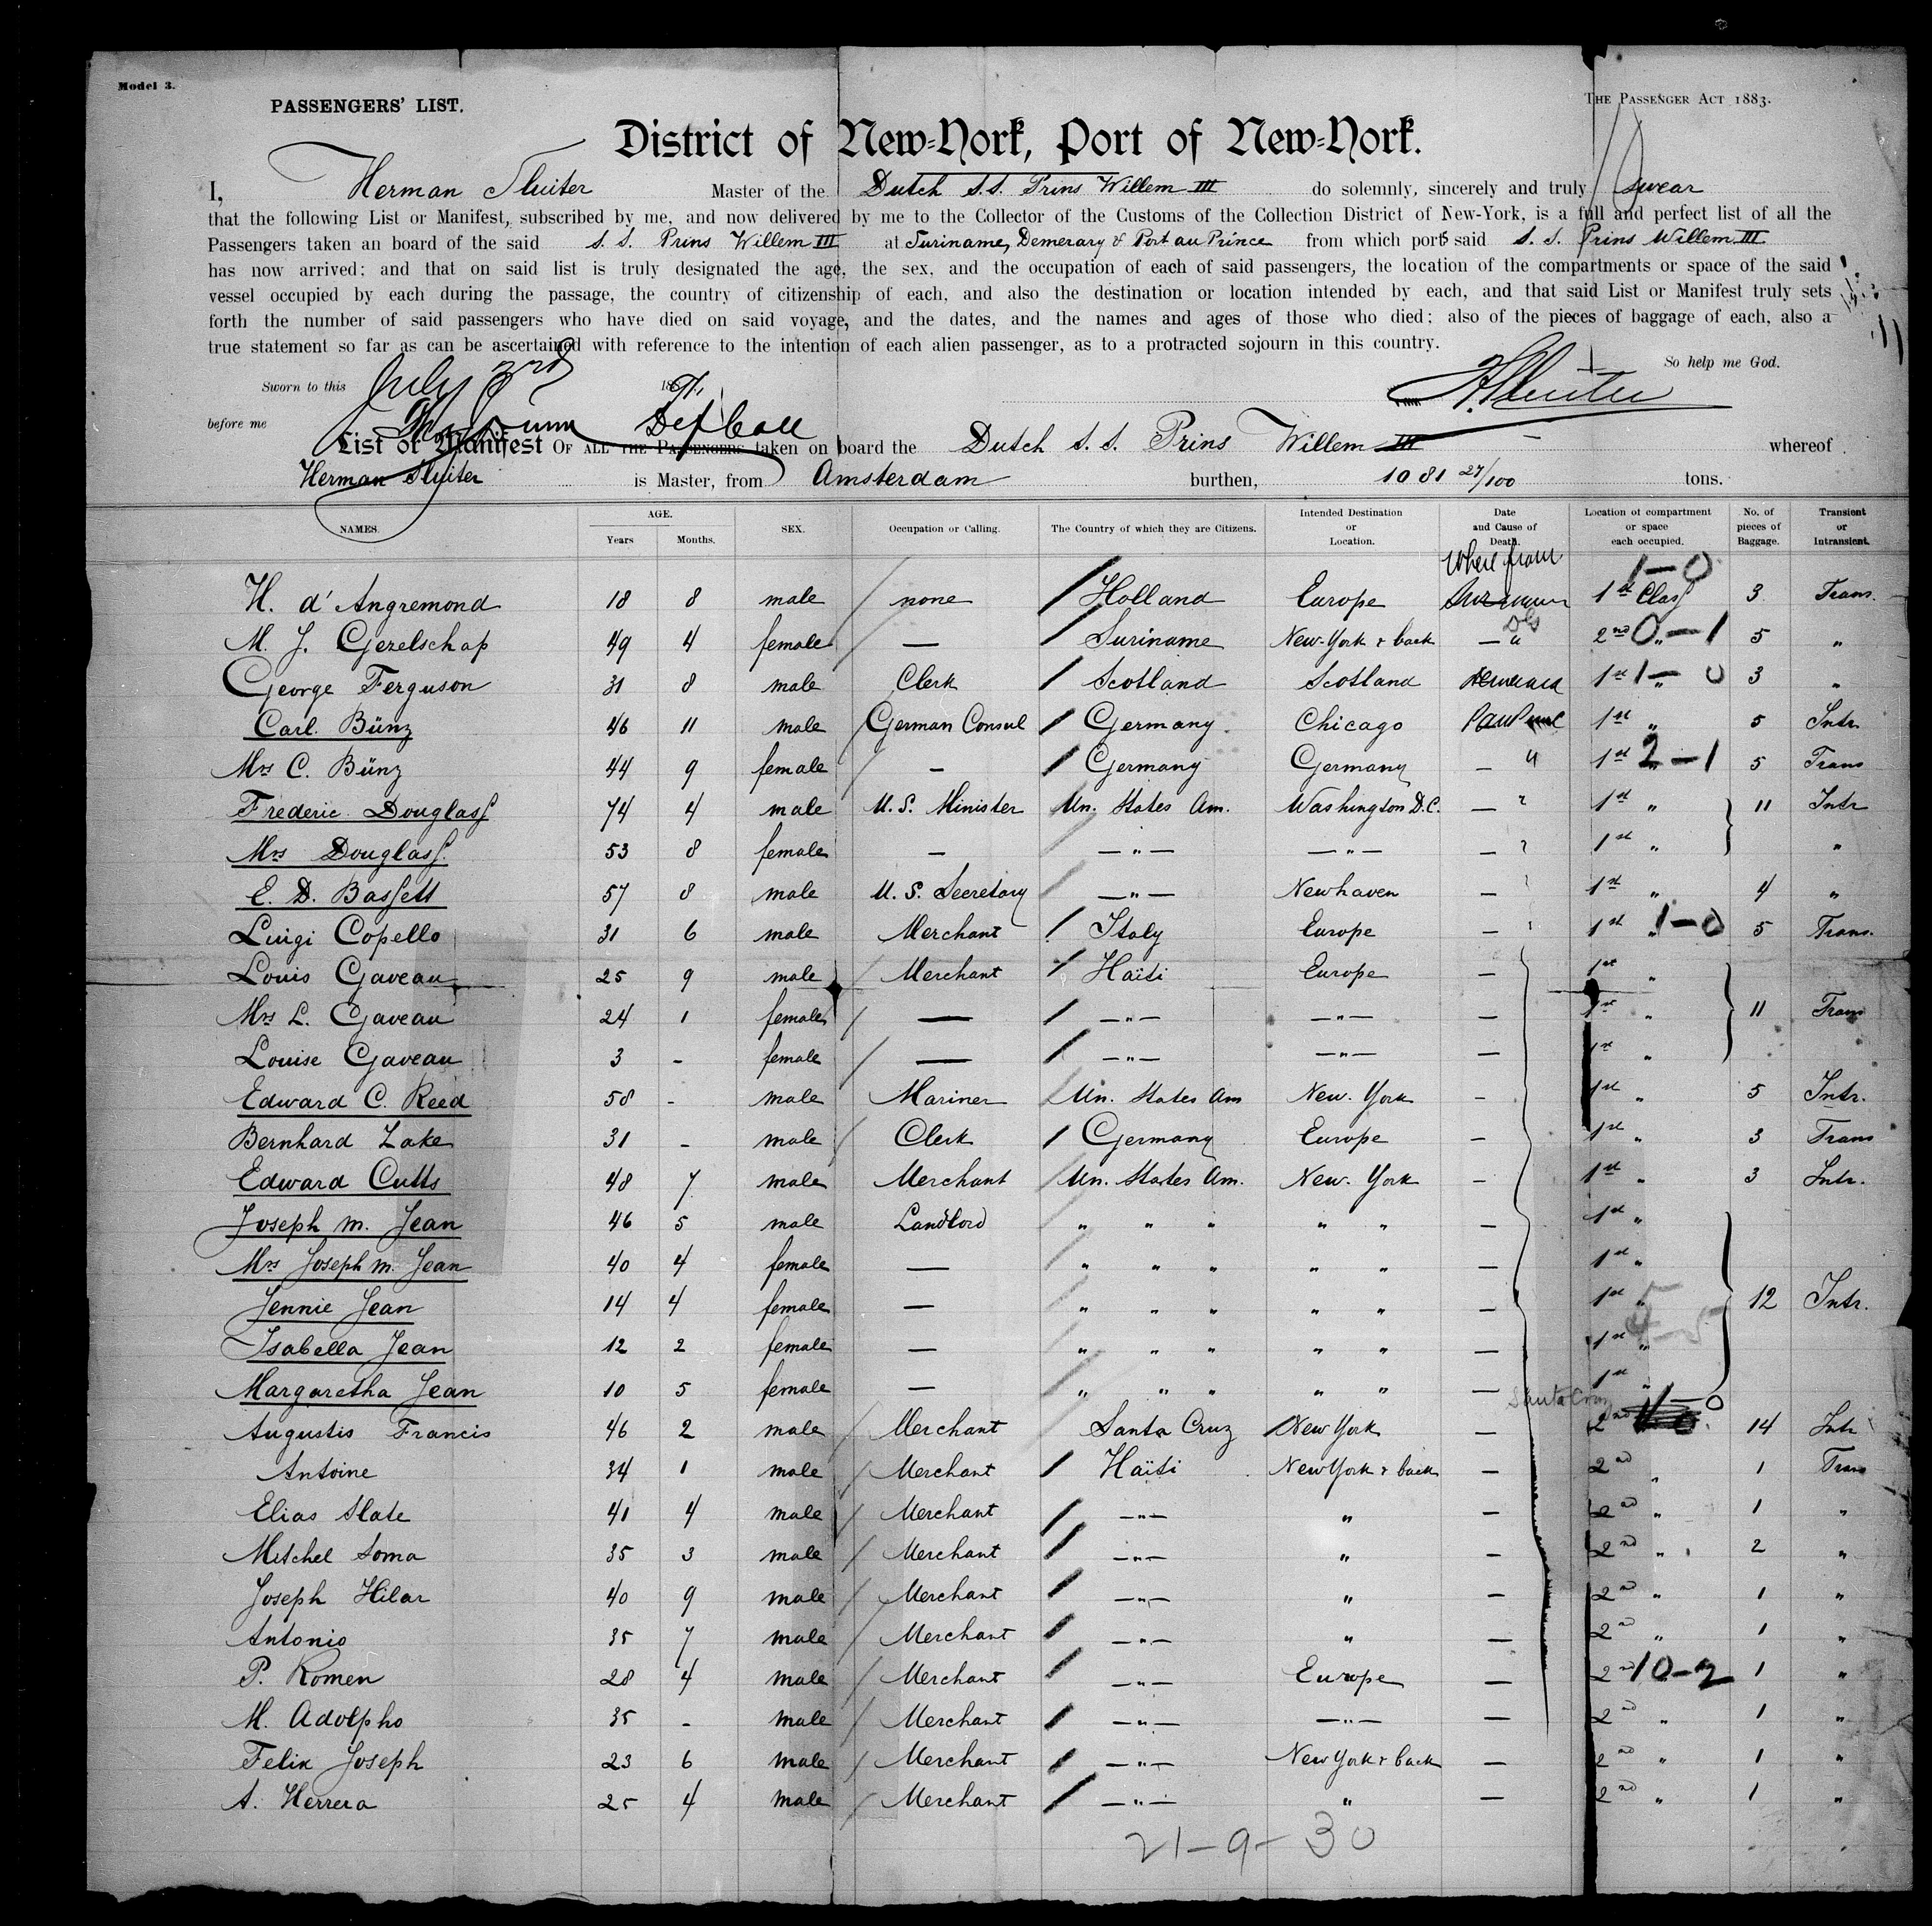 Model 3.
PASSENGERS' LIST.
THE PASSENGER ACT 1883.
District of New-York, Port of New-York.
I, Herman Sluiter Master of the Dutch S.S. Prins Willem III do solemnly, sincerely and truly swear
that the following List or Manifest, subscribed by me, and now delivered by me to the Collector of the Customs of the Collection District of New-York, is a full and perfect list of all the
Passengers taken an board of the said S. S. Prins Willem III at Suriname, Demerary & Port au Prince from which ports said S. S. Prins Willem III
has now arrived; and that on said list is truly designated the age, the sex, and the occupation of each of said passengers, the location of the compartments or space of the said
vessel occupied by each during the passage, the country of citizenship of each, and also the destination or location intended by each, and that said List or Manifest truly sets
forth the number of said passengers who have died on said voyage, and the dates, and the names and ages of those who died; also of the pieces of baggage of each, also a
true statement so far as can be ascertained with reference to the intention of each alien passenger, as to a protracted sojourn in this country.
So help me God.
Sworn to this July 3rd 1891, H. Sluiter
before me Dep Coll
List or Manifest OF ALL THE PASSENGERS taken on board the Dutch S. S. Prins Willem III whereof
Herman Sluiter is Master, from Amsterdam burthen, 1081 27/100 tons.
NAMES. AGE. Years Months. SEX. Occupation or Calling. The Country of which they are Citizens. Intended Destination or Location. Date and Cause of Death. Location of compartment or space each occupied. No. of pieces of Baggage. Transient or Intransient.
Where from 1-0
H. d'Angremond 18 8 male none Holland Europe 1st Class 3 Trans.
M. J. Gezelschap 49 4 female — Suriname New-York & back — " 2nd " 0-1 5 "
George Ferguson 31 8 male Clerk Scotland Scotland Demerara 1st " 1-0 3 "
Carl. Bünz 46 11 male German Consul Germany. Chicago 1st " 5 Intr.
Mrs C. Bünz 44 9 female — Germany Germany — " 1st " 2-1 5 Trans
Frederic Douglass 74 4 male U. S. Minister Un. States Am. Washington D.C. — " 1st " 11 Intr
Mrs Douglass. 53 8 female — — " — — " — — " 1st " "
E. D. Bassett 57 8 male U. S. Secretary — " — Newhaven — " 1st " 4 "
Luigi Copello 31 6 male Merchant Italy Europe — " 1st " 1-0 5 Trans.
Louis Gaveau 25 9 male Merchant Haïti Europe — 1st "
Mrs L. Gaveau 24 1 female — — " — — " — — 1st " 11 Trans
Louise Gaveau 3 - female — — " — — " — — 1st "
Edward C. Reed 58 - male Mariner Un. States Am New. York — 1st " 5 Intr.
Bernhard Lake 31 - male Clerk Germany Europe — 1st " 3 Trans
Edward Cutts 48 7 male Merchant Un. States Am. New. York — 1st " 3 Intr.
Joseph m. Jean 46 5 male Landlord " " " " " — 1st "
Mrs Joseph m. Jean 40 4 female — " " " " " — 1st "
Jennie Jean 14 4 female — " " " " " — 1st " 12 Intr.
Isabella Jean 12 2 female — " " " " " — 1st " 4-5
Margaretha Jean 10 5 female — " " " " " — 1st "
Santa Cruz 1-0
Augustis Francis 46 2 male Merchant Santa Cruz New York — 2nd 14 Intr
Antoine 34 1 male Merchant Haïti New York & back — 2nd " 1 Trans
Elias Slate 41 4 male Merchant — " — " — 2nd " 1 "
Mitchel Soma 35 3 male Merchant — " — " — 2nd " 2 "
Joseph Hilar 40 9 male Merchant — " — " — 2nd " 1 "
Antonio 35 7 male Merchant — " — " — 2nd " 1 "
P. Romen 28 4 male Merchant — " — Europe — 2nd 10-2 1 "
M. Adolpho 35 - male Merchant — " — — " — — 2nd " 1 "
Felix Joseph 23 6 male Merchant — " — New York & back — 2nd " 1 "
A. Herrera 25 4 male Merchant — " — " — 2nd " 1 "
21-9-30